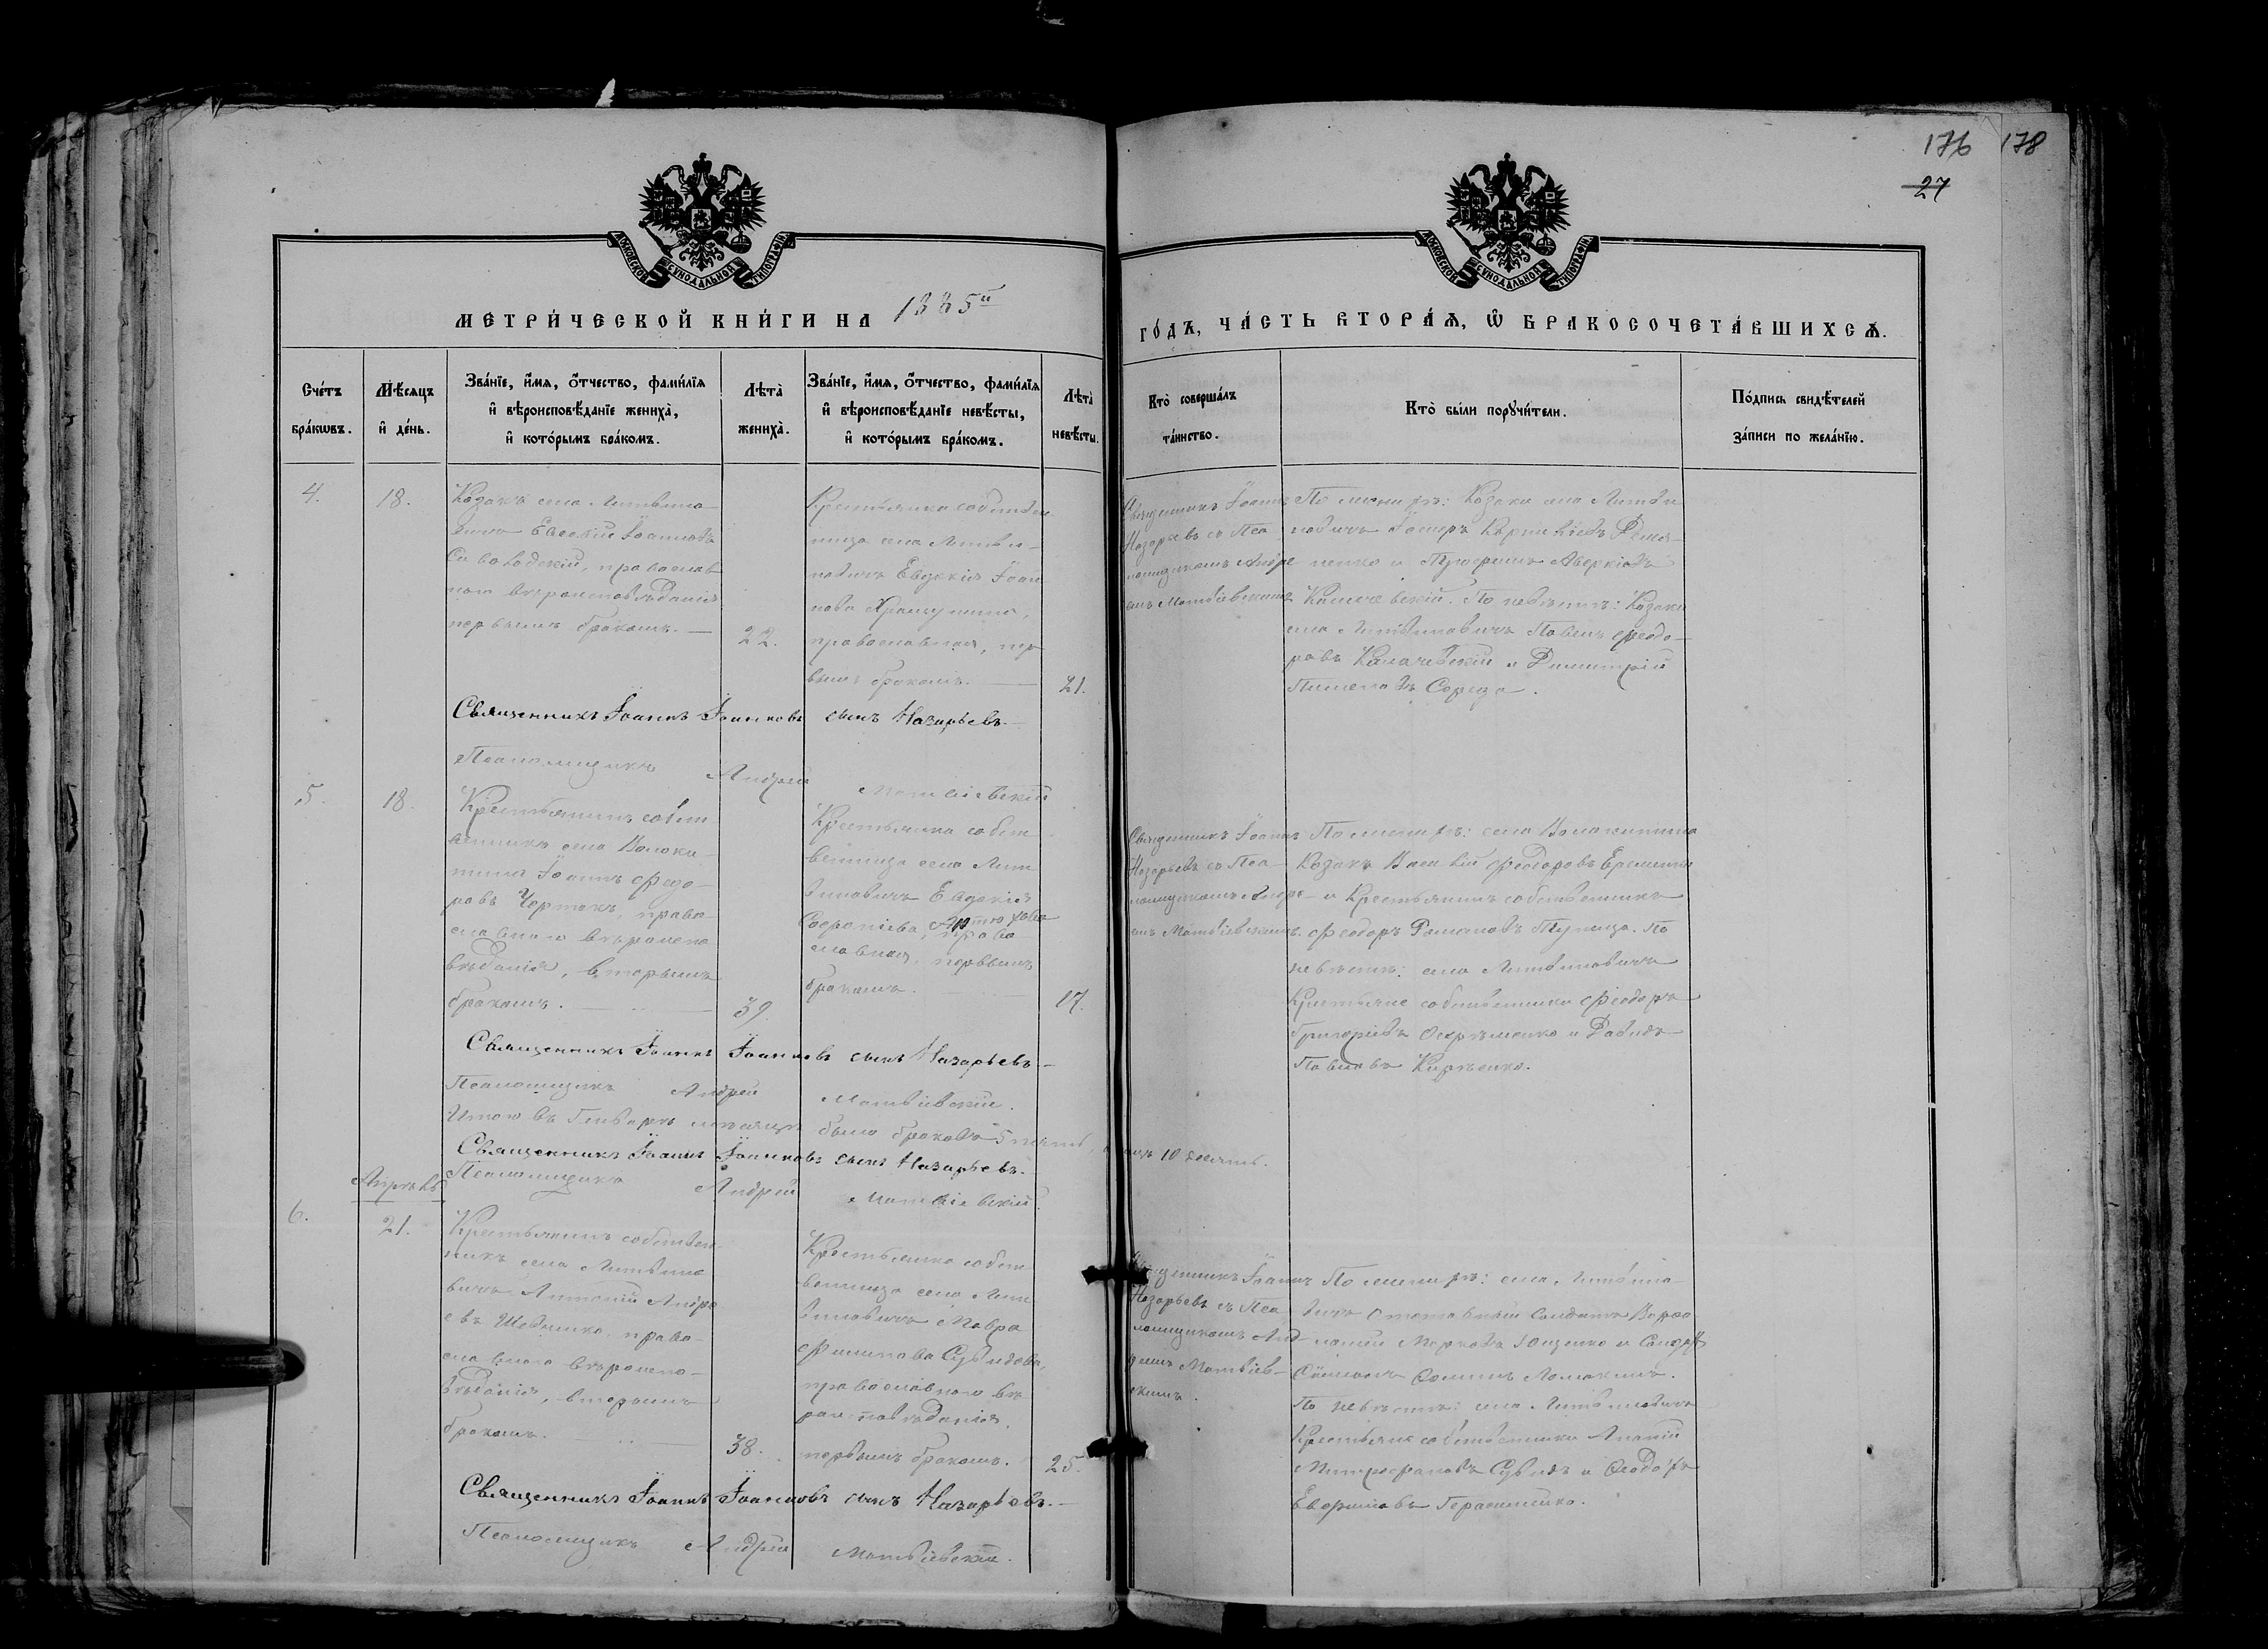 176 178
27
МОСКОВСКОЙ СѴНОДАЛЬНОЙ ТИПОГРАФІИ
МОСКОВСКОЙ СѴНОДАЛЬНОЙ ТИПОГРАФІИ
МЕТРИ́ЧЕСКОЙ КНИ́ГИ НА 1885й
ГО́ДЪ, ЧА́СТЬ ВТОРА́Я, Ѡ БРАКОСОЧЕТА́ВШИХСЯ.
Сче́тъ
бра́кѡвъ.
Мѣ́сяцъ
и де́нь.
Зва́нїе, и́мя, о́тчество, фами́лїя
и вѣроисповѣ́данїе жениха̀,
и кото́рымъ бра́комъ.
Лѣта̀
жениха̀.
Зва́нїе, и́мя, о́тчество, фами́лїя
и вѣроисповѣ́данїе невѣ́сты,
и кото́рымъ бра́комъ.
Лѣта̀
невѣ́сты.
Кто̀ соверша́лъ
та́инство.
Кто̀ бы́ли поручи́тели.
По́дпись свидѣ́телей
за́писи по жела́нїю.
4.
18.
Козакъ села Литвино-
вичъ Евсевій Іоанновъ
православ
наго вѣроисповѣданія
первымъ бракомъ. —
22.
Крестьянка собствен
ница села Литви-
новичъ Евдокія Іоан
нова
православная, пер
вымъ бракомъ. —
21.
Священникъ Іоаннъ
Назарьевъ съ Пса
ломщикомъ Андре
емъ Матвіевскимъ
По женихѣ: Козаки села Литви
новичъ
ненко и Трофимъ Аверкіевъ
По невѣстѣ: Козаки
села Литвиновичъ Павелъ Феодо-
ровъ Калачевскій и Димитрій
Пименовъ Середа.
Священникъ Іоаннъ Іоанновъ сынъ Назарьевъ.—
Псаломщикъ Андрей Матвіевскій
5.
18.
Крестьянинъ собст
венникъ села Волоки-
тина Іоаннъ Феодо-
ровъ Чортокъ, право-
славнаго вѣроиспо
вѣданія, вторымъ
бракомъ. —
39.
Крестьянка собст
венница села Лит
виновичъ Евдокія
право
славная, первымъ
бракомъ. —
17.
Священникъ Іоаннъ
Назарьевъ съ Пса-
ломщикомъ Андре-
емъ Матвіевскимъ.
По женихѣ: села Волокитина
Козакъ Василій Феодоровъ Еременко
и Крестьянинъ собственникъ
Феодоръ Романовъ Тупица. По
невѣстѣ: села Литвиновичъ
Крестьяне собственники Феодоръ
Григоріевъ и Давидъ
Павловъ Кирѣенко.
Священникъ Іоаннъ Іоанновъ сынъ Назарьевъ.—
Псаломщикъ Андрей Матвіевскій.
Итого въ Генварѣ мѣсяцѣ было браковъ 5 пять, лицъ 10 десять.
Священникъ Іоаннъ Іоанновъ сынъ Назарьевъ.
Псаломщикъ Андрей Матвіевскій.
Апрѣль
6.
21.
Крестьянинъ собствен
никъ села Литвино
вичъ Антоній Андре
евъ Шевченко, право-
славнаго вѣроиспо-
вѣданія, вторымъ
бракомъ. —
38.
Крестьянка собст
венница села Лит
виновичъ Мавра
Филиппова Сувидова,
православнаго вѣ
роисповѣданія,
первымъ бракомъ.
25.
Священникъ Іоаннъ
Назарьевъ съ Пса
ломщикомъ Анд-
реемъ Матвіев-
скимъ.
По женихѣ: села Литвино-
вичъ отставной Солдатъ Варфо
ломей Марковъ Гащенко и
По невѣстѣ: села Литвиновичъ
Крестьяне собственники
Митрофановъ Сувидъ и Феодоръ
Евфимовъ Герасименко.
Священникъ Іоаннъ Іоанновъ сынъ Назарьевъ.—
Псаломщикъ Андрей Матвіевскій.